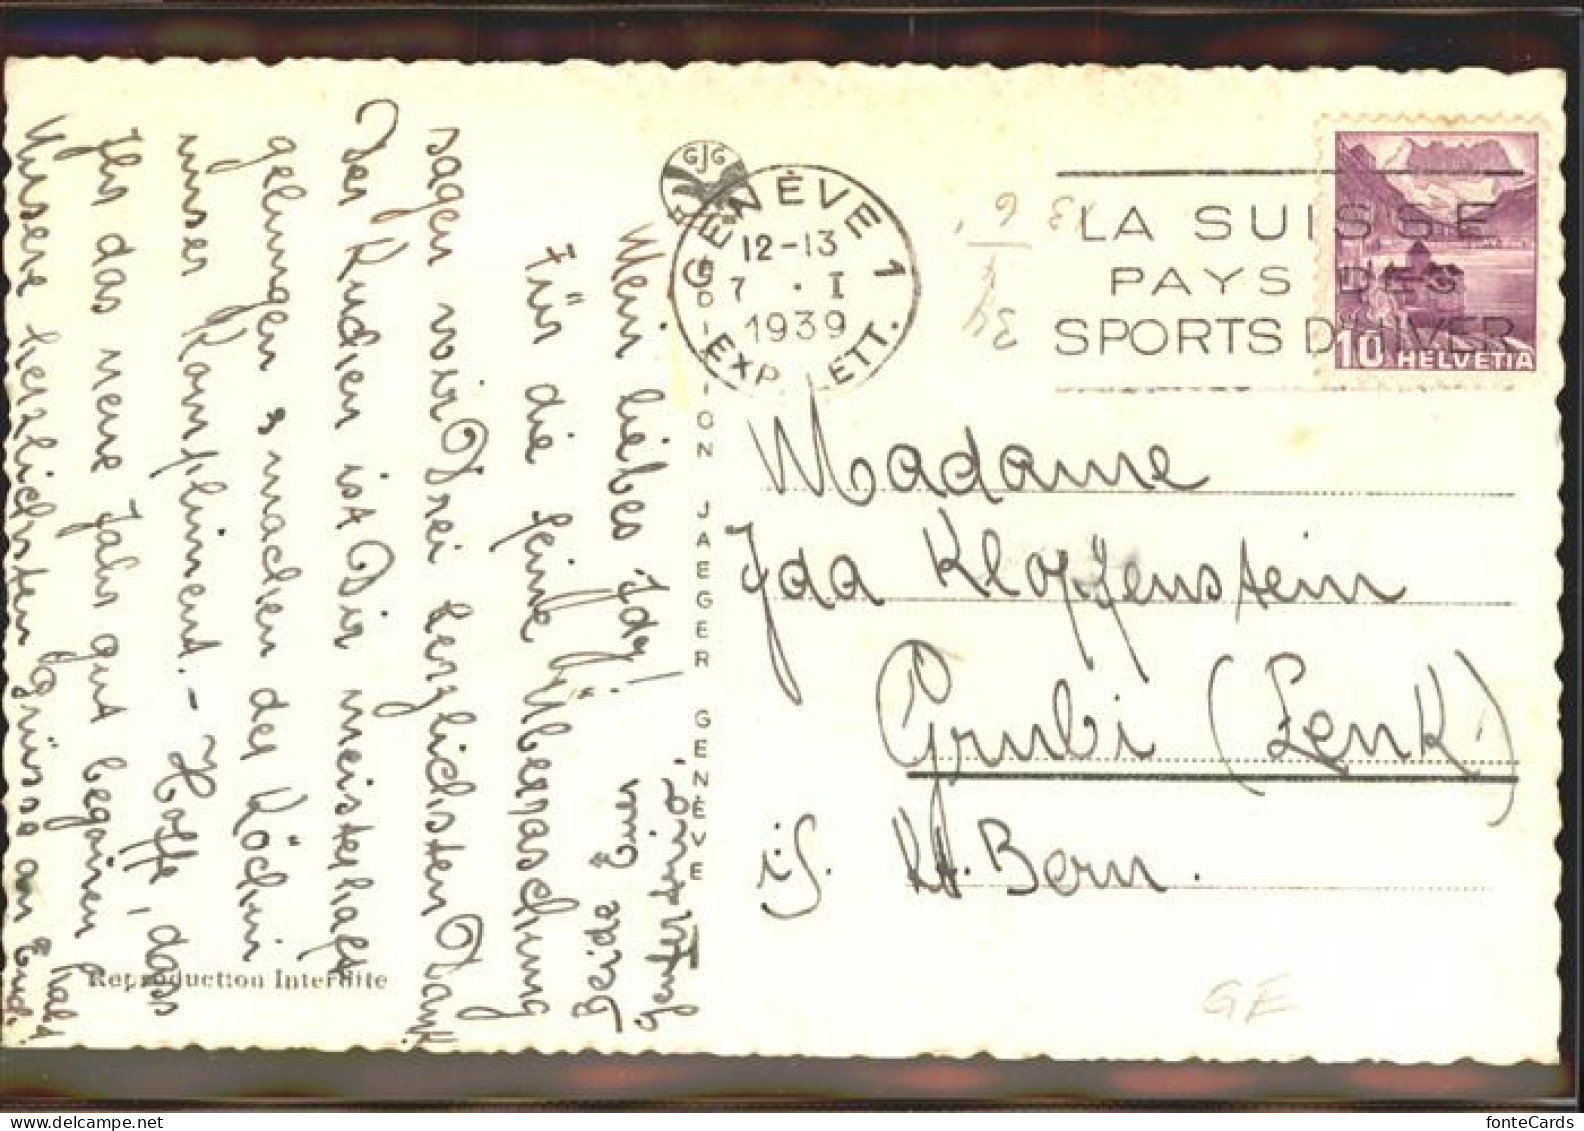 Mein liebes Idy!
Für die feine Überraschung
sagen wir Drei herzlichsten Dank.
Der Kuchen ist Dir meisterhaft
gelungen & machen der Köchin
unser Kompliment. - Hoffe, dass
Ihr das neue Jahr gut begonnen habt.
Unsere herzlichsten Grüsse an Euch
Beide Eure
GJG
GENÈVE 1
12-13
7 · I
1939
EXP. LETT.
LA SUISSE
PAYS DES
SPORTS D'HIVER
10 HELVETIA
EDITION JAEGER GENÈVE
Madame
Ida Klopfenstein
Grubi (Lenk)
i/S. Kt. Bern.
Reproduction Interdite
GE
fonteCards